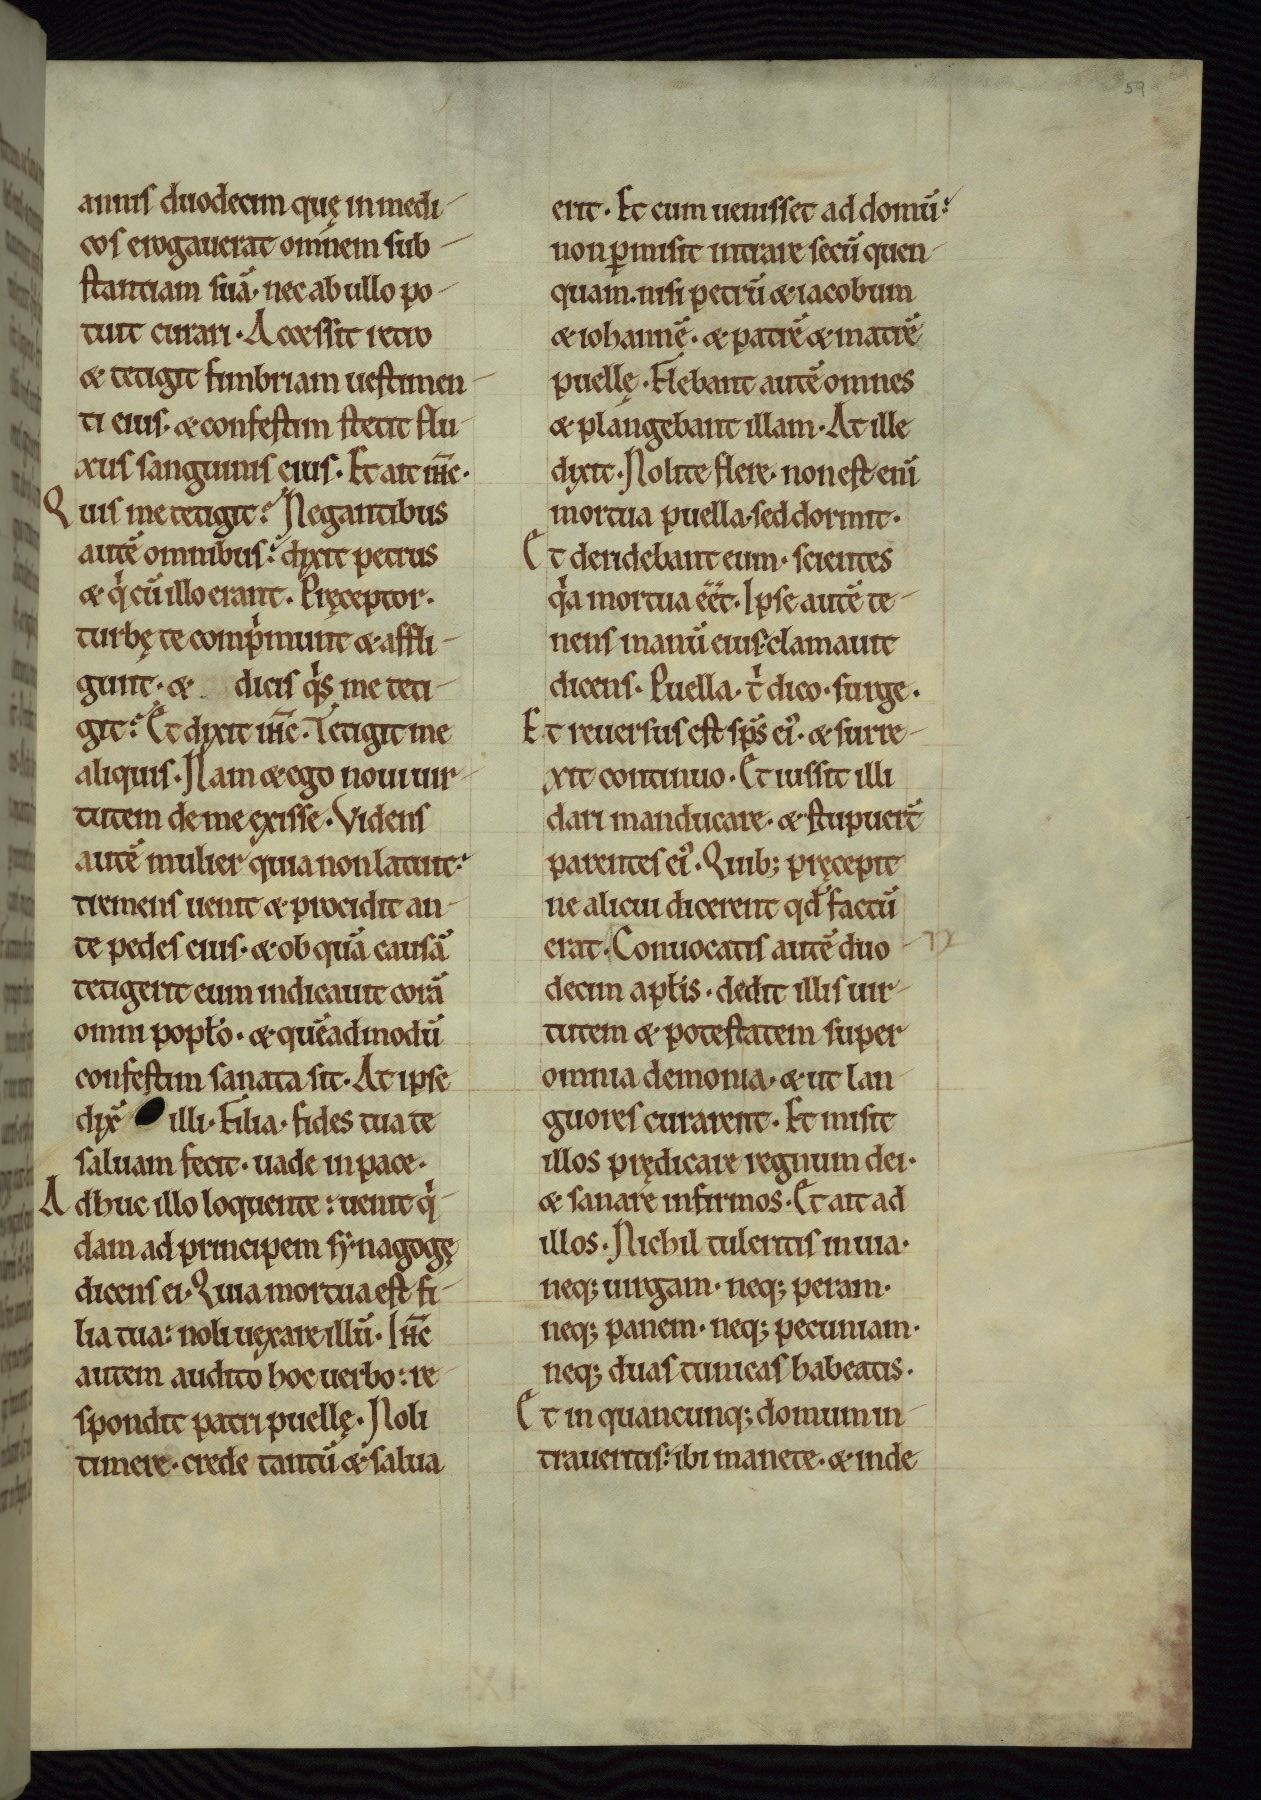 59
annis duodecim quę in medi-
cos erogauerat omnem sub-
stantiam suā· nec ab ullo po-
tuit curari· Accessit retro
& tetigit fimbriam uestimen-
ti eius· & confestim stetit flu-
xus sanguinis eius· Et ait ihc̄·
Quis me tetigit? Negantibus
autē omnibus: dixit petrus
& qͥ cū illo erant· Pręceptor·
turbę te compͥmunt & affli-
gunt· & dicis qͥs me teti-
git? Et dixit ihc̄· Tetigit me
aliquis· Nam & ego noui uir-
tutem de me exisse· Videns
autē mulier quia non latuit:
tremens uenit & procidit an-
te pedes eius· & ob quā causā
tetigerit eum indicauit corā
omni popl̄o· & quēadmodū
confestim sanata sit· At ipse
dix̄ illi· Filia· fides tua te
saluam fecit· uade in pace·
Adhuc illo loquente: uenit qͥ-
dam ad principem synagogę
dicens ei· Quia mortua est fi-
lia tua: noli uexare illū· Ihc̄
autem audito hoc uerbo: re-
spondit patri puellę· Noli
timere· crede tantū & salua
erit· Et cum uenisset ad domū:
non ꝑmisit intrare secū quen-
quam· nisi petrū & iacobum
& iohannē· & patrē & matrē
puellę· Flebant autē omnes
& plangebant illam· At ille
dixit· Nolite flere· non est eni̅
mortua puella· sed dormit·
Et deridebant eum· scientes
qͣa mortua eēt· Ipse autē te-
nens manū eius· clamauit
dicens· Puella· tͥ dico· surge·
Et reuersus est sps̄ ei᷒· & surre-
xit continuo· Et iussit illi
dari manducare· & stupuer̄t
parentes ei᷒· Quib; pręcepit
ne alicui dicerent qd̄ factū
erat· Conuocatis autē duo- IX
decim apl̄is· dedit illis uir-
tutem & potestatem super
omnia demonia· & ut lan-
guores curarent· Et misit
illos prędicare regnum dei·
& sanare infirmos· Et ait ad
illos· Nichil tuleritis in uia·
neq; uirgam· neq; peram·
neq; panem· neq; pecuniam·
neq; duas tunicas habeatis·
Et in quancunq; domum in-
traueritis: ibi manete· & inde